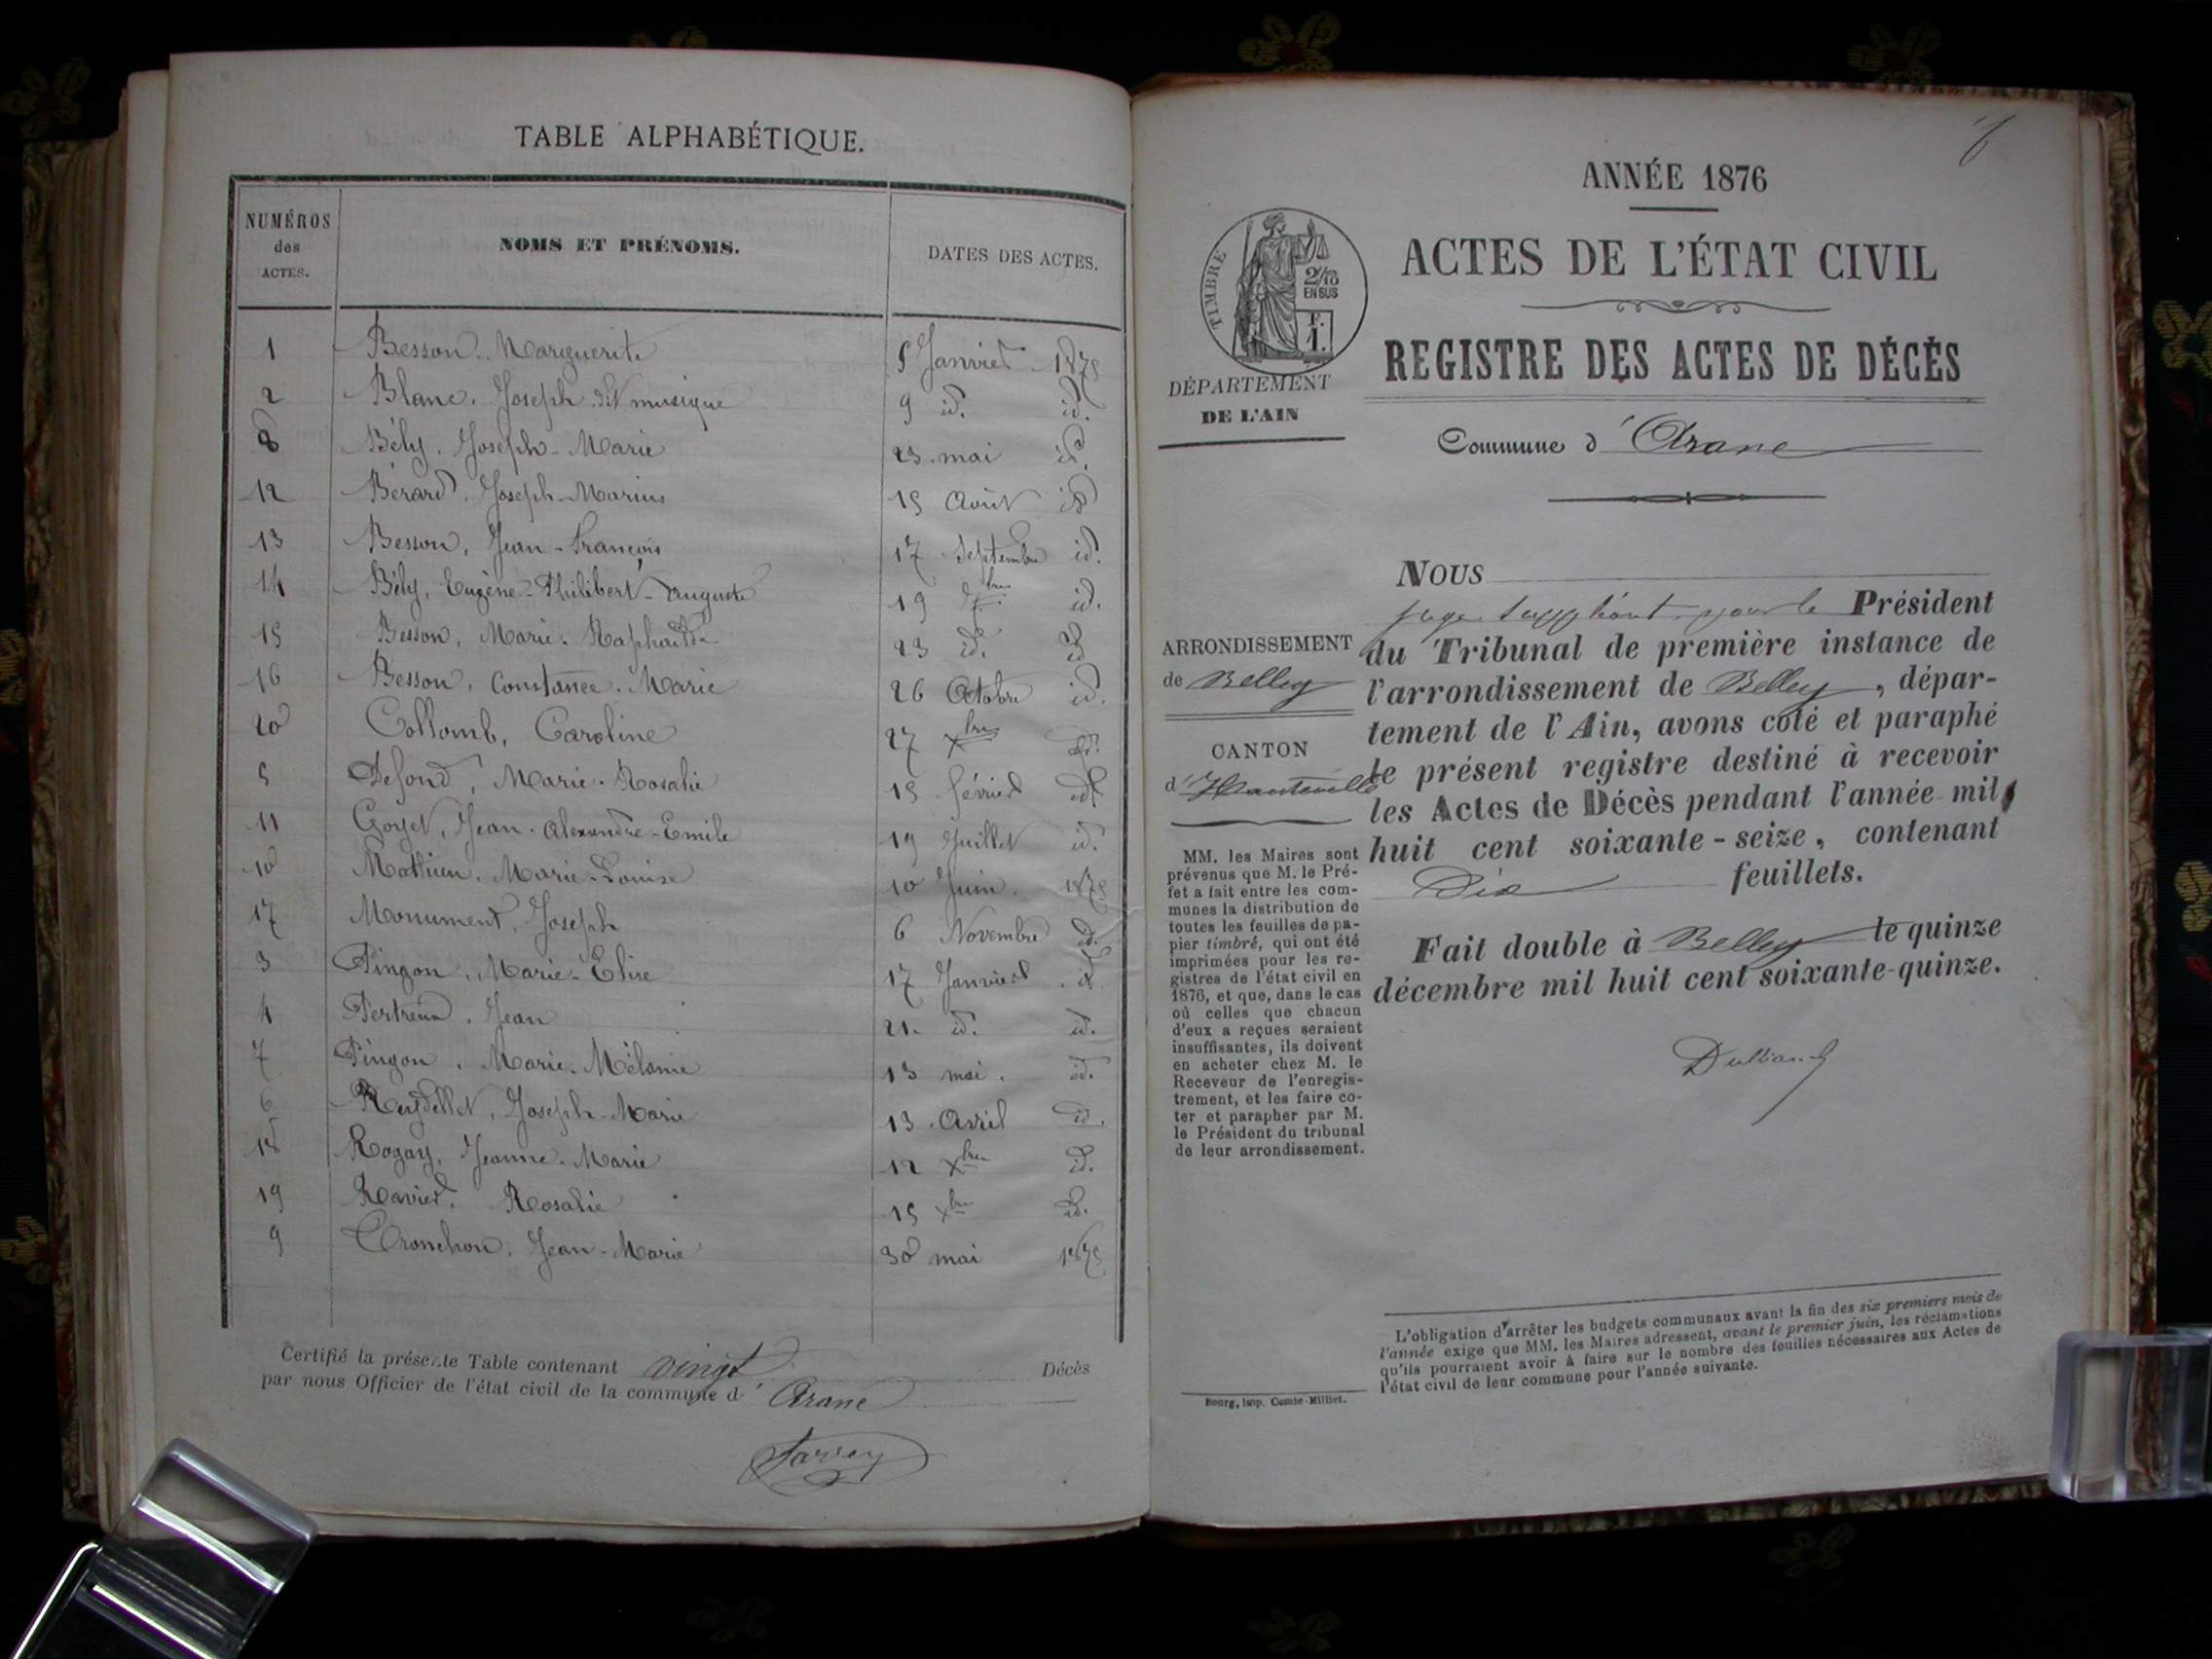 TABLE ALPHABÉTIQUE.
NUMÉROS
des
ACTES.
NOMS ET PRÉNOMS.
DATES DES ACTES.
1 Besson. Marguerite 5 Janvier 1875
2 Blanc. Joseph dit musique 9 id. id.
8 Bély. Joseph-Marie 23 mai id.
12 Bérard, Joseph-Marius 15 Août id.
13 Besson, Jean-François 17 Septembre id.
14 Bély, Eugène-Philibert-Auguste 19 7bre id.
15 Besson, Marie. 23 id. id.
16 Besson, Constance. Marie 26 Octobre id.
20 Collomb, Caroline 27 Xbre id.
5 Defond, Marie-Rosalie 15 février id.
11 Goyet, Jean-Alexandre-Emile 19 Juillet id.
10 Mathieu. Marie-Louise 10 Juin. 1875
17 Monument, Joseph 6 Novembre id.
3 Pingon, Marie-Elise 17 Janvier id.
4 Jean 21 id. id.
7 Pingon. Marie. Mélanie 13 mai. id.
6 Reydellet, Joseph-Marie 13 Avril id.
18 Rogay, Jeanne-Marie 12 Xbre id.
19 Ravier. Rosalie 15 Xbre id.
9 Tronchon, Jean-Marie 30 mai 1875
Certifié la présente Table contenant vingt Décès
par nous Officier de l'état civil de la commune d' Arane
ANNÉE 1876
ACTES DE L'ÉTAT CIVIL
REGISTRE DES ACTES DE DÉCÈS
TIMBRE
2/10
EN SUS
F.
1.
DÉPARTEMENT
DE L'AIN
Commune d' Arane
NOUS
juge suppléant pour le Président
du Tribunal de première instance de
l'arrondissement de Belley, dépar-
tement de l'Ain, avons coté et paraphé
le présent registre destiné à recevoir
les Actes de Décès pendant l'année mil
huit cent soixante-seize, contenant
Dix feuillets.
Fait double à Belley le quinze
décembre mil huit cent soixante-quinze.
ARRONDISSEMENT
de Belley
CANTON
d'Hauteville
MM. les Maires sont
prévenus que M. le Pré-
fet a fait entre les com-
munes la distribution de
toutes les feuilles de pa-
pier timbré, qui ont été
imprimées pour les re-
gistres de l'état civil en
1876, et que, dans le cas
où celles que chacun
d'eux a reçues seraient
insuffisantes, ils doivent
en acheter chez M. le
Receveur de l'enregis-
trement, et les faire co-
ter et parapher par M.
le Président du tribunal
de leur arrondissement.
L'obligation d'arrêter les budgets communaux avant la fin des six premiers mois de
l'année exige que MM. les Maires adressent, avant le premier juin, les réclamations
qu'ils pourraient avoir à faire sur le nombre des feuilles nécessaires aux Actes de
l'état civil de leur commune pour l'année suivante.
Bourg, imp. Comte-Milliet.